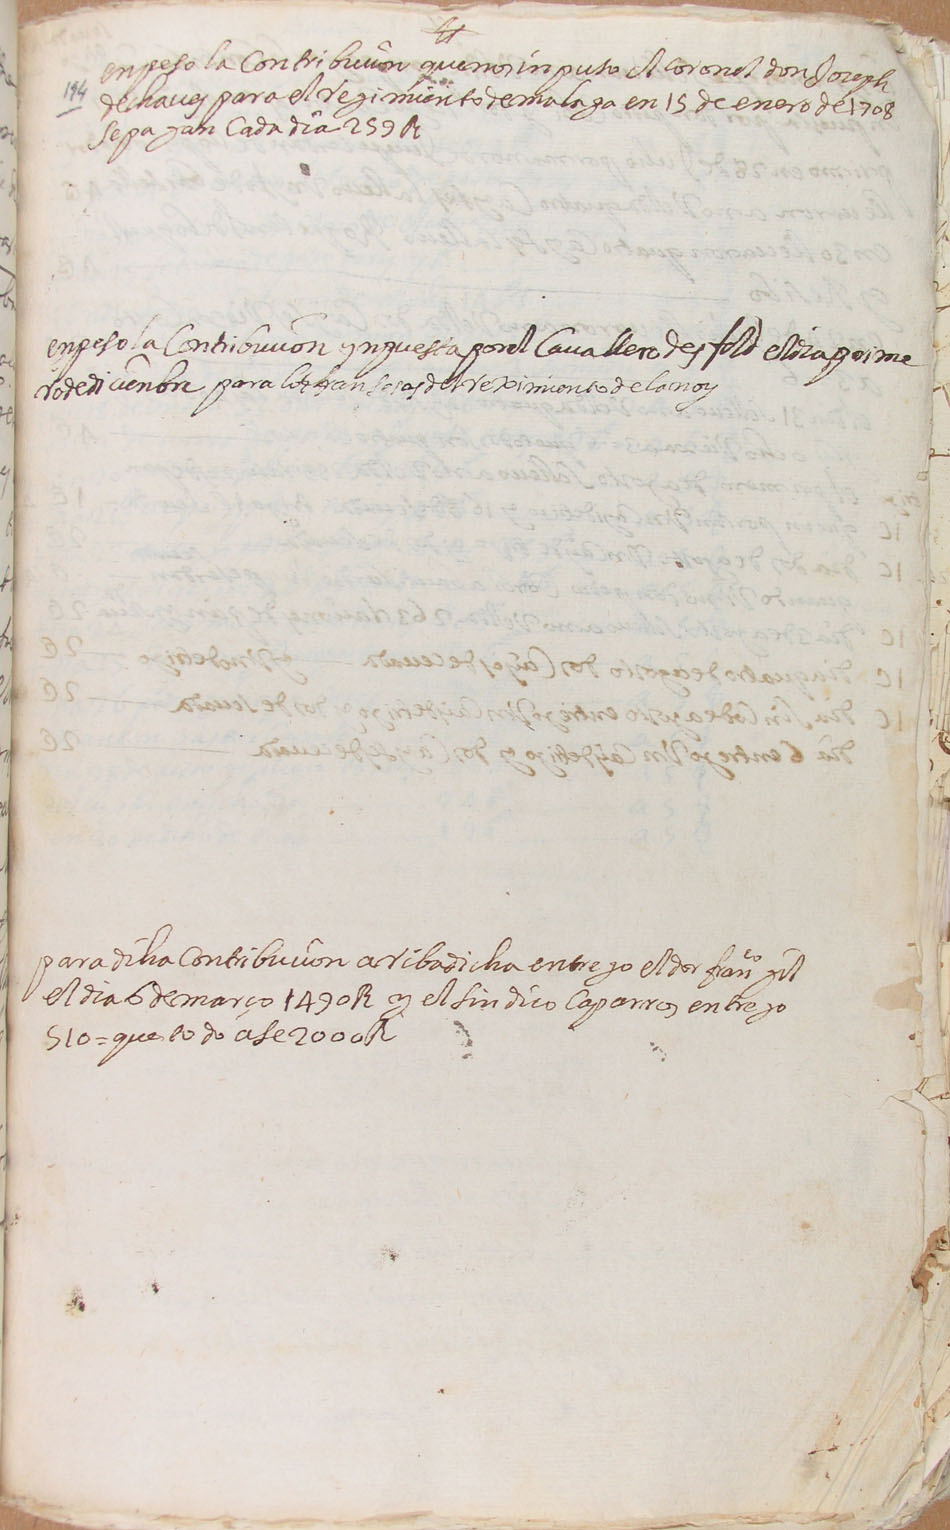 194
enpeso la Contribucion que nos inputo el Coronel don Joseph
de chaues para el regimiento de malaga en 15 de enero de 1708
se pagan Cada dia 259 R
enpeso la Contribucion ynpuesta por el Cauallero desfold el dia prime
ro de diciembre para los franseses del reximiento de lanoy
para dicha Contribucion arriba dicha entrego el dor franco gil
el dia 6 de março 1490 R y el sindico Caparros entrego
510 = que todo ase 2000 R